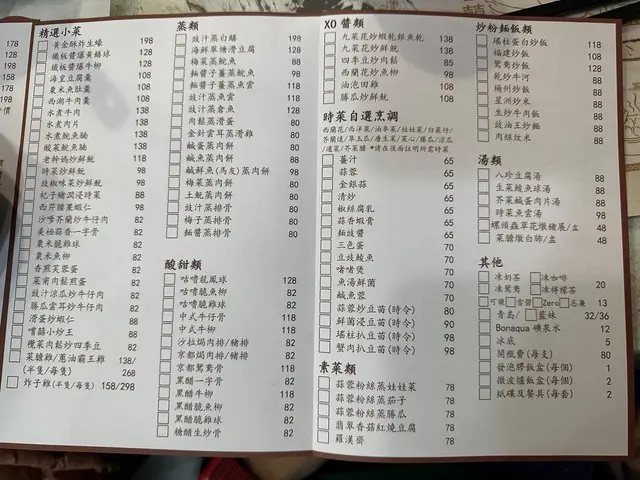 精選小菜
黃金酥炸生蠔 198
鐵板醬爆黃鱔球 128
鐵板醬爆牛柳 128
海皇豆腐羹 108
粟米魚肚羹 108
西湖牛肉羹 108
水煮牛肉 138
水煮肉片 138
水煮鯇魚腩 138
酸菜鯇魚腩 138
老幹媽炒鮮魷 118
時菜炒鮮魷 98
豉椒味菜炒鮮魷 98
杞子豬潤浸時菜 88
西芹腰果蝦仁 98
沙嗲芥蘭炒牛仔肉 82
姜極蒜香一字骨 82
粟米脆雞球 82
粟米魚柳 82
香煎芙蓉蛋 82
菜甫肉鬆煎蛋 82
豉汁涼瓜炒牛仔肉 82
勝瓜雲耳炒牛仔肉 82
滑蛋炒蝦仁 88
嚐囍小炒王 88
欖菜肉鬆炒四季豆 82
菜膽雞/蔥油霸王雞 138/
(半隻/每隻) 268
炸子雞(半隻/每隻) 158/298
蒸類
豉汁蒸白鱔 198
海鮮單糖滑豆腐 128
梅菜蒸鯇魚 88
麵醬子薑蒸鯇魚 98
麵醬子薑蒸魚雲 118
豉汁蒸魚雲 118
豉汁蒸倉魚 128
肉鬆蒸滑蛋 80
金針雲耳蒸滑雞 80
鹹蛋蒸肉餅 80
鹹魚蒸肉餅 88
鹹鮮魚(馬友)蒸肉餅 98
梅菜蒸肉餅 80
土魷蒸肉餅 80
豉汁蒸排骨 80
梅子蒸排骨 80
麵醬蒸排骨 80
酸甜類
咕嚕龍鳳球 128
咕嚕脆魚柳 82
咕嚕脆雞球 82
中式牛仔骨 118
中式牛柳 118
沙拉焗肉排/豬排 82
京都焗肉排/豬排 82
京都鴛鴦骨 118
黑醋一字骨 82
黑醋牛柳 118
黑醋脆魚柳 82
黑醋脆雞球 82
糖醋生炒骨 82
XO 醬類
九菜花炒蝦乾銀魚乾 138
九菜花炒鮮魷 138
四季豆炒肉鬆 85
西蘭花炒魚柳 98
油泡田雞 108
勝瓜炒鮮魷 108
時菜自選烹調
西蘭花/西洋菜/油麥菜/娃娃菜/白菜仔/
芥蘭遠/翠玉瓜/唐生菜/菜心/勝瓜/涼瓜
/通菜/芥菜膽 *請在後面註明所需時菜
薑汁 65
蒜蓉 65
金銀蒜 65
清炒 65
椒絲腐乳 65
蒜香蝦骨 65
麵豉醬 65
三色蛋 70
豆豉鯪魚 70
啫啫煲 70
魚湯鮮菌 70
鹹魚蓉 70
蒜蓉炒豆苗(時令) 80
鮮菌浸豆苗(時令) 90
瑤柱扒豆苗(時令) 98
蟹肉扒豆苗(時令) 98
素菜類
蒜蓉粉絲蒸娃娃菜 78
蒜蓉粉絲蒸茄子 78
蒜蓉粉絲蒸勝瓜 78
翡翠香菇紅燒豆腐 78
羅漢齋 78
炒粉麵飯類
瑤柱蛋白炒飯 118
福建炒飯 108
鴛鴦炒飯 128
乾炒牛河 88
楊州炒飯 88
星洲炒米 88
生炒牛肉飯 88
豉油王炒麵 88
肉絲炆米 88
湯類
八珍豆腐湯 88
生菜鯪魚球湯 88
芥菜鹹蛋肉片湯 88
時菜魚雲湯 98
螺頭蟲草花燉豬展/盅 48
菜膽燉白肺/盅 48
其他
凍奶茶 凍咖啡
凍鴛鴦 凍檸檬茶 20
可樂 雪碧 Zero 忌廉 13
青島/ 藍妹 32/36
Bonaqua 礦泉水 12
冰底 5
開瓶費(每支) 80
發泡膠飯盒(每個) 1
微波爐飯盒(每個) 2
紙碟及餐具(每套) 2
178
198
158
178
198